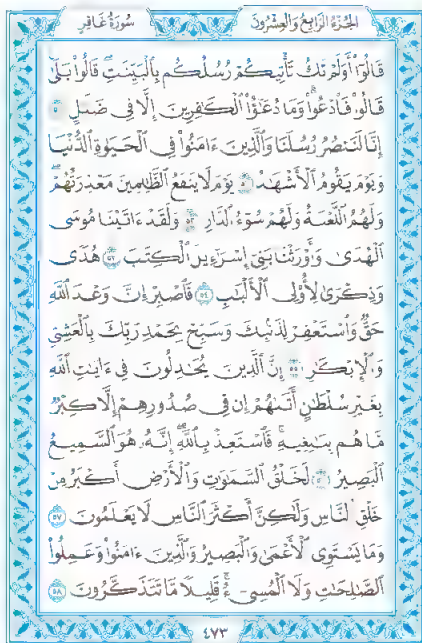 سُورَةُ غَافِرٍ الجُزءُ الرَّابِعُ وَالعِشْرُونَ
قَالُوٓا۟ أَوَلَمْ تَكُ تَأْتِيكُمْ رُسُلُكُم بِٱلْبَيِّنَٰتِ قَالُوا۟ بَلَىٰ
قَالُوا۟ فَٱدْعُوا۟ وَمَا دُعَٰٓؤُا۟ ٱلْكَٰفِرِينَ إِلَّا فِى ضَلَٰلٍ ٥٠
إِنَّا لَنَنصُرُ رُسُلَنَا وَٱلَّذِينَ ءَامَنُوا۟ فِى ٱلْحَيَوٰةِ ٱلدُّنْيَا
وَيَوْمَ يَقُومُ ٱلْأَشْهَٰدُ ٥١ يَوْمَ لَا يَنفَعُ ٱلظَّٰلِمِينَ مَعْذِرَتُهُمْ
وَلَهُمُ ٱللَّعْنَةُ وَلَهُمْ سُوٓءُ ٱلدَّارِ ٥٢ وَلَقَدْ ءَاتَيْنَا مُوسَى
ٱلْهُدَىٰ وَأَوْرَثْنَا بَنِىٓ إِسْرَٰٓءِيلَ ٱلْكِتَٰبَ ٥٣ هُدًى
وَذِكْرَىٰ لِأُو۟لِى ٱلْأَلْبَٰبِ ٥٤ فَٱصْبِرْ إِنَّ وَعْدَ ٱللَّهِ
حَقٌّ وَٱسْتَغْفِرْ لِذَنۢبِكَ وَسَبِّحْ بِحَمْدِ رَبِّكَ بِٱلْعَشِىِّ
وَٱلْإِبْكَٰرِ ٥٥ إِنَّ ٱلَّذِينَ يُجَٰدِلُونَ فِىٓ ءَايَٰتِ ٱللَّهِ
بِغَيْرِ سُلْطَٰنٍ أَتَىٰهُمْ إِن فِى صُدُورِهِمْ إِلَّا كِبْرٌ
مَّا هُم بِبَٰلِغِيهِ فَٱسْتَعِذْ بِٱللَّهِ إِنَّهُۥ هُوَ ٱلسَّمِيعُ
ٱلْبَصِيرُ ٥٦ لَخَلْقُ ٱلسَّمَٰوَٰتِ وَٱلْأَرْضِ أَكْبَرُ مِنْ
خَلْقِ ٱلنَّاسِ وَلَٰكِنَّ أَكْثَرَ ٱلنَّاسِ لَا يَعْلَمُونَ ٥٧
وَمَا يَسْتَوِى ٱلْأَعْمَىٰ وَٱلْبَصِيرُ وَٱلَّذِينَ ءَامَنُوا۟ وَعَمِلُوا۟
ٱلصَّٰلِحَٰتِ وَلَا ٱلْمُسِىٓءُ قَلِيلًا مَّا تَتَذَكَّرُونَ ٥٨
٤٧٣